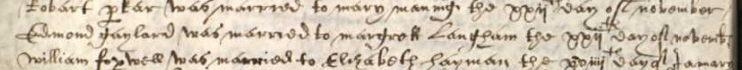 Robart pkar was married to mary maninge the xxii day of november
Edmond gaylard was married to margrett Langham the xxii th day of novembr
william foxwell was married to Elizabeth hayman the xviii th day of January